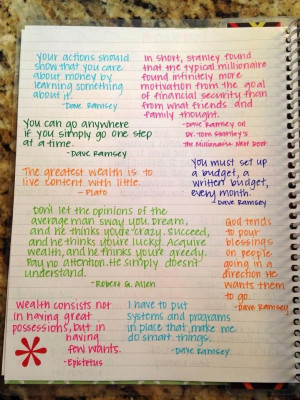 Your actions should
show that you care
about money by
learning something
about it.
-Dave Ramsey
In short, Stanley found
that the typical millionaire
found infinitely more
motivation from the goal
of financial security than
from what friends and
family thought.
-Dave Ramsey on
Dr. Tom Stanley's
The Millionaire Next Door
You can go anywhere
if you simply go one step
at a time.
-Dave Ramsey
You must set up
a budget, a
written budget,
every month.
-Dave Ramsey
The greatest wealth is to
live content with little.
-Plato
Don't let the opinions of the
average man sway you. Dream,
and he thinks you're crazy. Succeed,
and he thinks you're lucky. Acquire
wealth, and he thinks you're greedy.
Pay no attention. He simply doesn't
understand.
-Robert G. Allen
God tends
to pour
blessings
on people
going in a
direction He
wants them
to go.
-Dave Ramsey
Wealth consists not
in having great
possessions, but in
having
few wants.
-Epictetus
I have to put
systems and programs
in place that make me
do smart things.
-Dave Ramsey